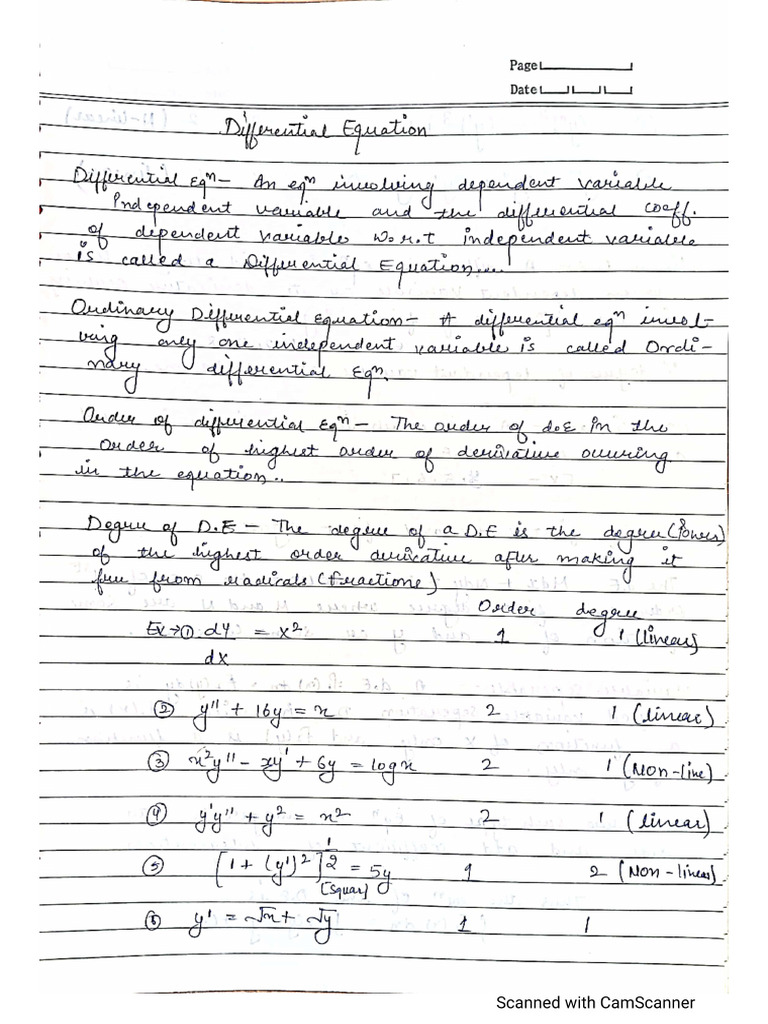 Page
Date
Differential Equation
Differential Eqⁿ – An eqⁿ involving dependent variable
Independent variable and the differential coeff.
of dependent variable w.r.t independent variable
is called a Differential Equation....
Ordinary Differential Equation – A differential eqⁿ invol-
ving only one independent variable is called Ordi-
nary differential Eqⁿ.
Order of differential Eqⁿ – The order of d.E in the
order of highest order of derivative occuring
in the equation..
Degree of D.E – The degree of a D.E is the degree (Powers)
of the highest order derivative after making it
free from radicals (fractione)
Order degree
Ex → ① dy/dx = x² 1 1 (linear)
② y'' + 16y = x 2 1 (linear)
③ x²y'' – xy' + 6y = logx 2 1 (Non-line)
④ y'y'' + y² = x² 2 1 (linear)
⑤ [1 + (y')²]^1/2 = 5y 1 2 (Non-linear)
[Squar]
⑥ y' = √x + √y 1 1
Scanned with CamScanner